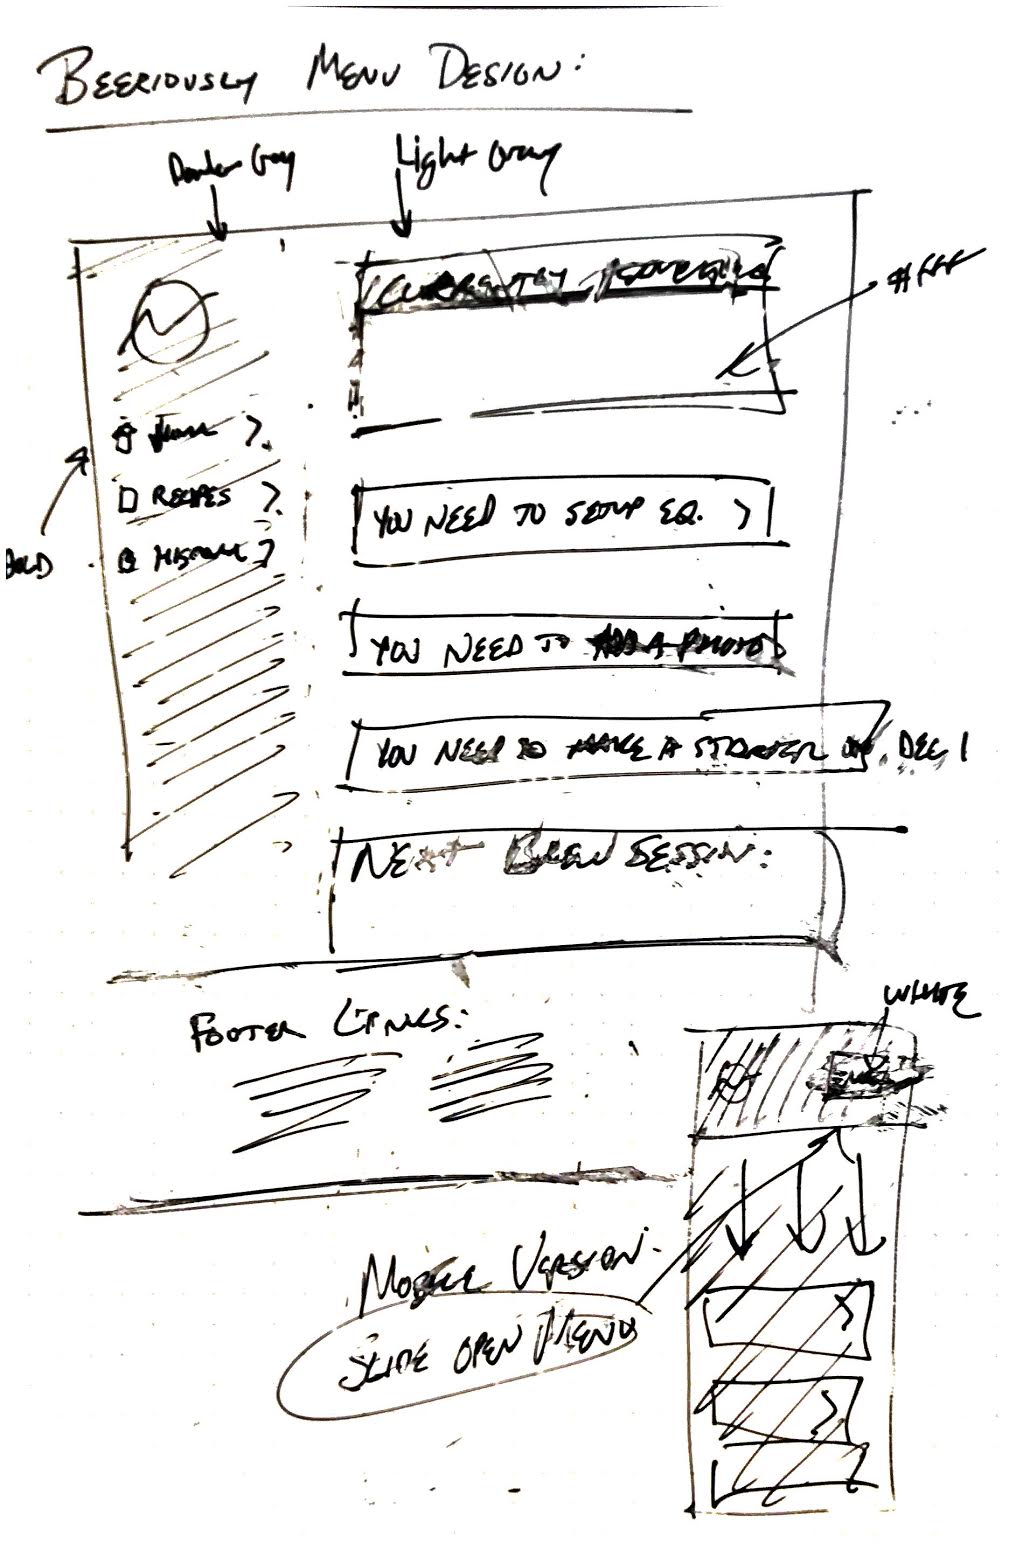 BEERIOUSLY MENU DESIGN:
Light Gray
CURRENTLY
#fff
RECIPES
YOU NEED TO SETUP EQ. >
BOLD
YOU NEED TO ADD A PHOTO
YOU NEED TO MAKE A STARTER ON DEC 1
NEXT BREW SESSION:
FOOTER LINKS:
WHITE
MOBILE VERSION:
SLIDE OPEN MENU